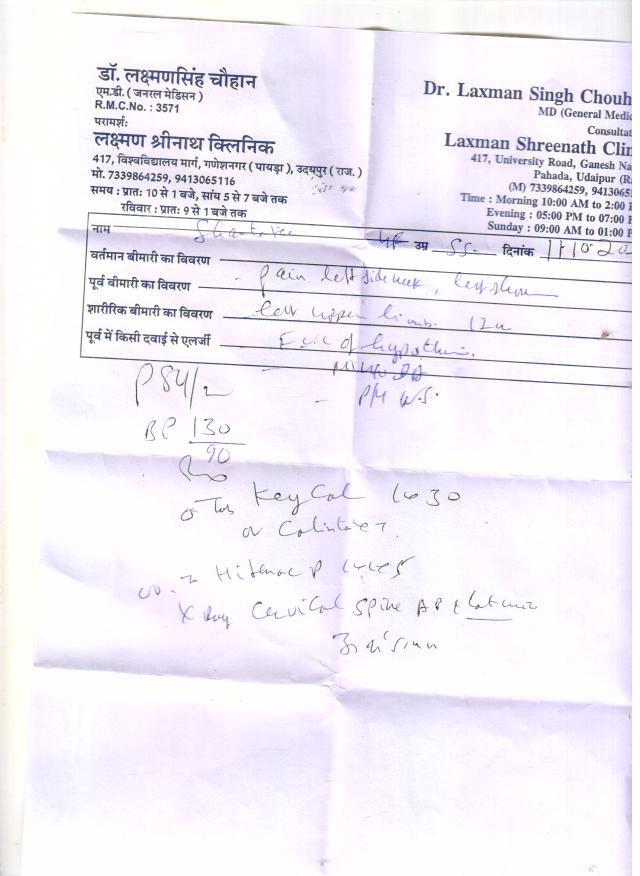 डॉ. लक्ष्मणसिंह चौहान
एम.डी. ( जनरल मेडिसन )
R.M.C.No. : 3571
परामर्श:
लक्ष्मण श्रीनाथ क्लिनिक
417, विश्वविद्यालय मार्ग, गणेशनगर ( पायड़ा ), उदयपुर ( राज. )
मो. 7339864259, 9413065116
समय : प्रात: 10 से 1 बजे, सांय 5 से 7 बजे तक
रविवार : प्रात: 9 से 1 बजे तक
Dr. Laxman Singh Chouh
MD (General Medic
Consultat
Laxman Shreenath Clin
417, University Road, Ganesh Na
Pahada, Udaipur (R
(M) 7339864259, 9413065
Time : Morning 10:00 AM to 2:00 P
Evening : 05:00 PM to 07:00 P
Sunday : 09:00 AM to 01:00 P
नाम उम्र 55 दिनांक
वर्तमान बीमारी का विवरण
पूर्व बीमारी का विवरण pain left side neck, left
शारीरिक बीमारी का विवरण left upper limb.
पूर्व में किसी दवाई से एलर्जी
P 84/
BP 130
90
Tab KeyCal
or
Hifenac P
X Ray Cervical Spine AP &